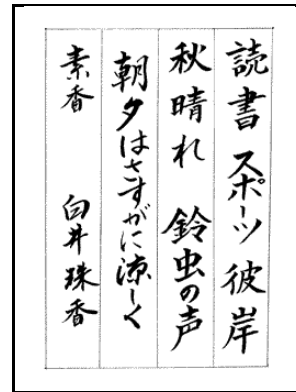 読書 スポーツ 彼岸
秋晴れ 鈴虫の声
朝夕はさすがに涼しく
素香 白井珠香